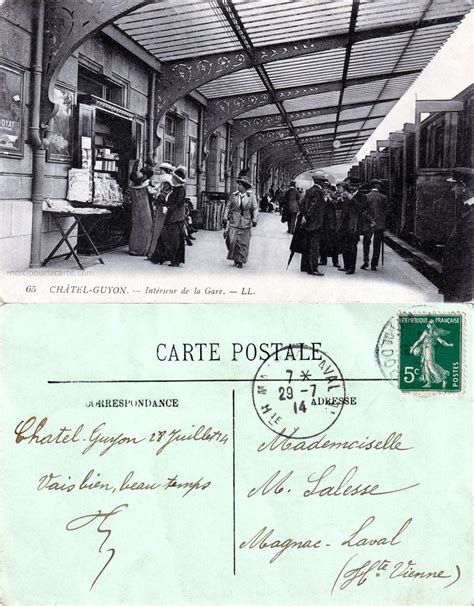 OYAT
mercipourlacarte.com
65 CHÂTEL-GUYON. — Intérieur de la Gare. — LL.
RÉPUBLIQUE FRANÇAISE
5c
CARTE POSTALE
MA LAVAL
7 *
29 - 7
14
Hte
CORRESPONDANCE
ADRESSE
Chatel-Guyon 28 Juillet 14
Vais bien, beau temps
Mademoiselle
M. Salesse
Magnac-Laval
(Hte Vienne)